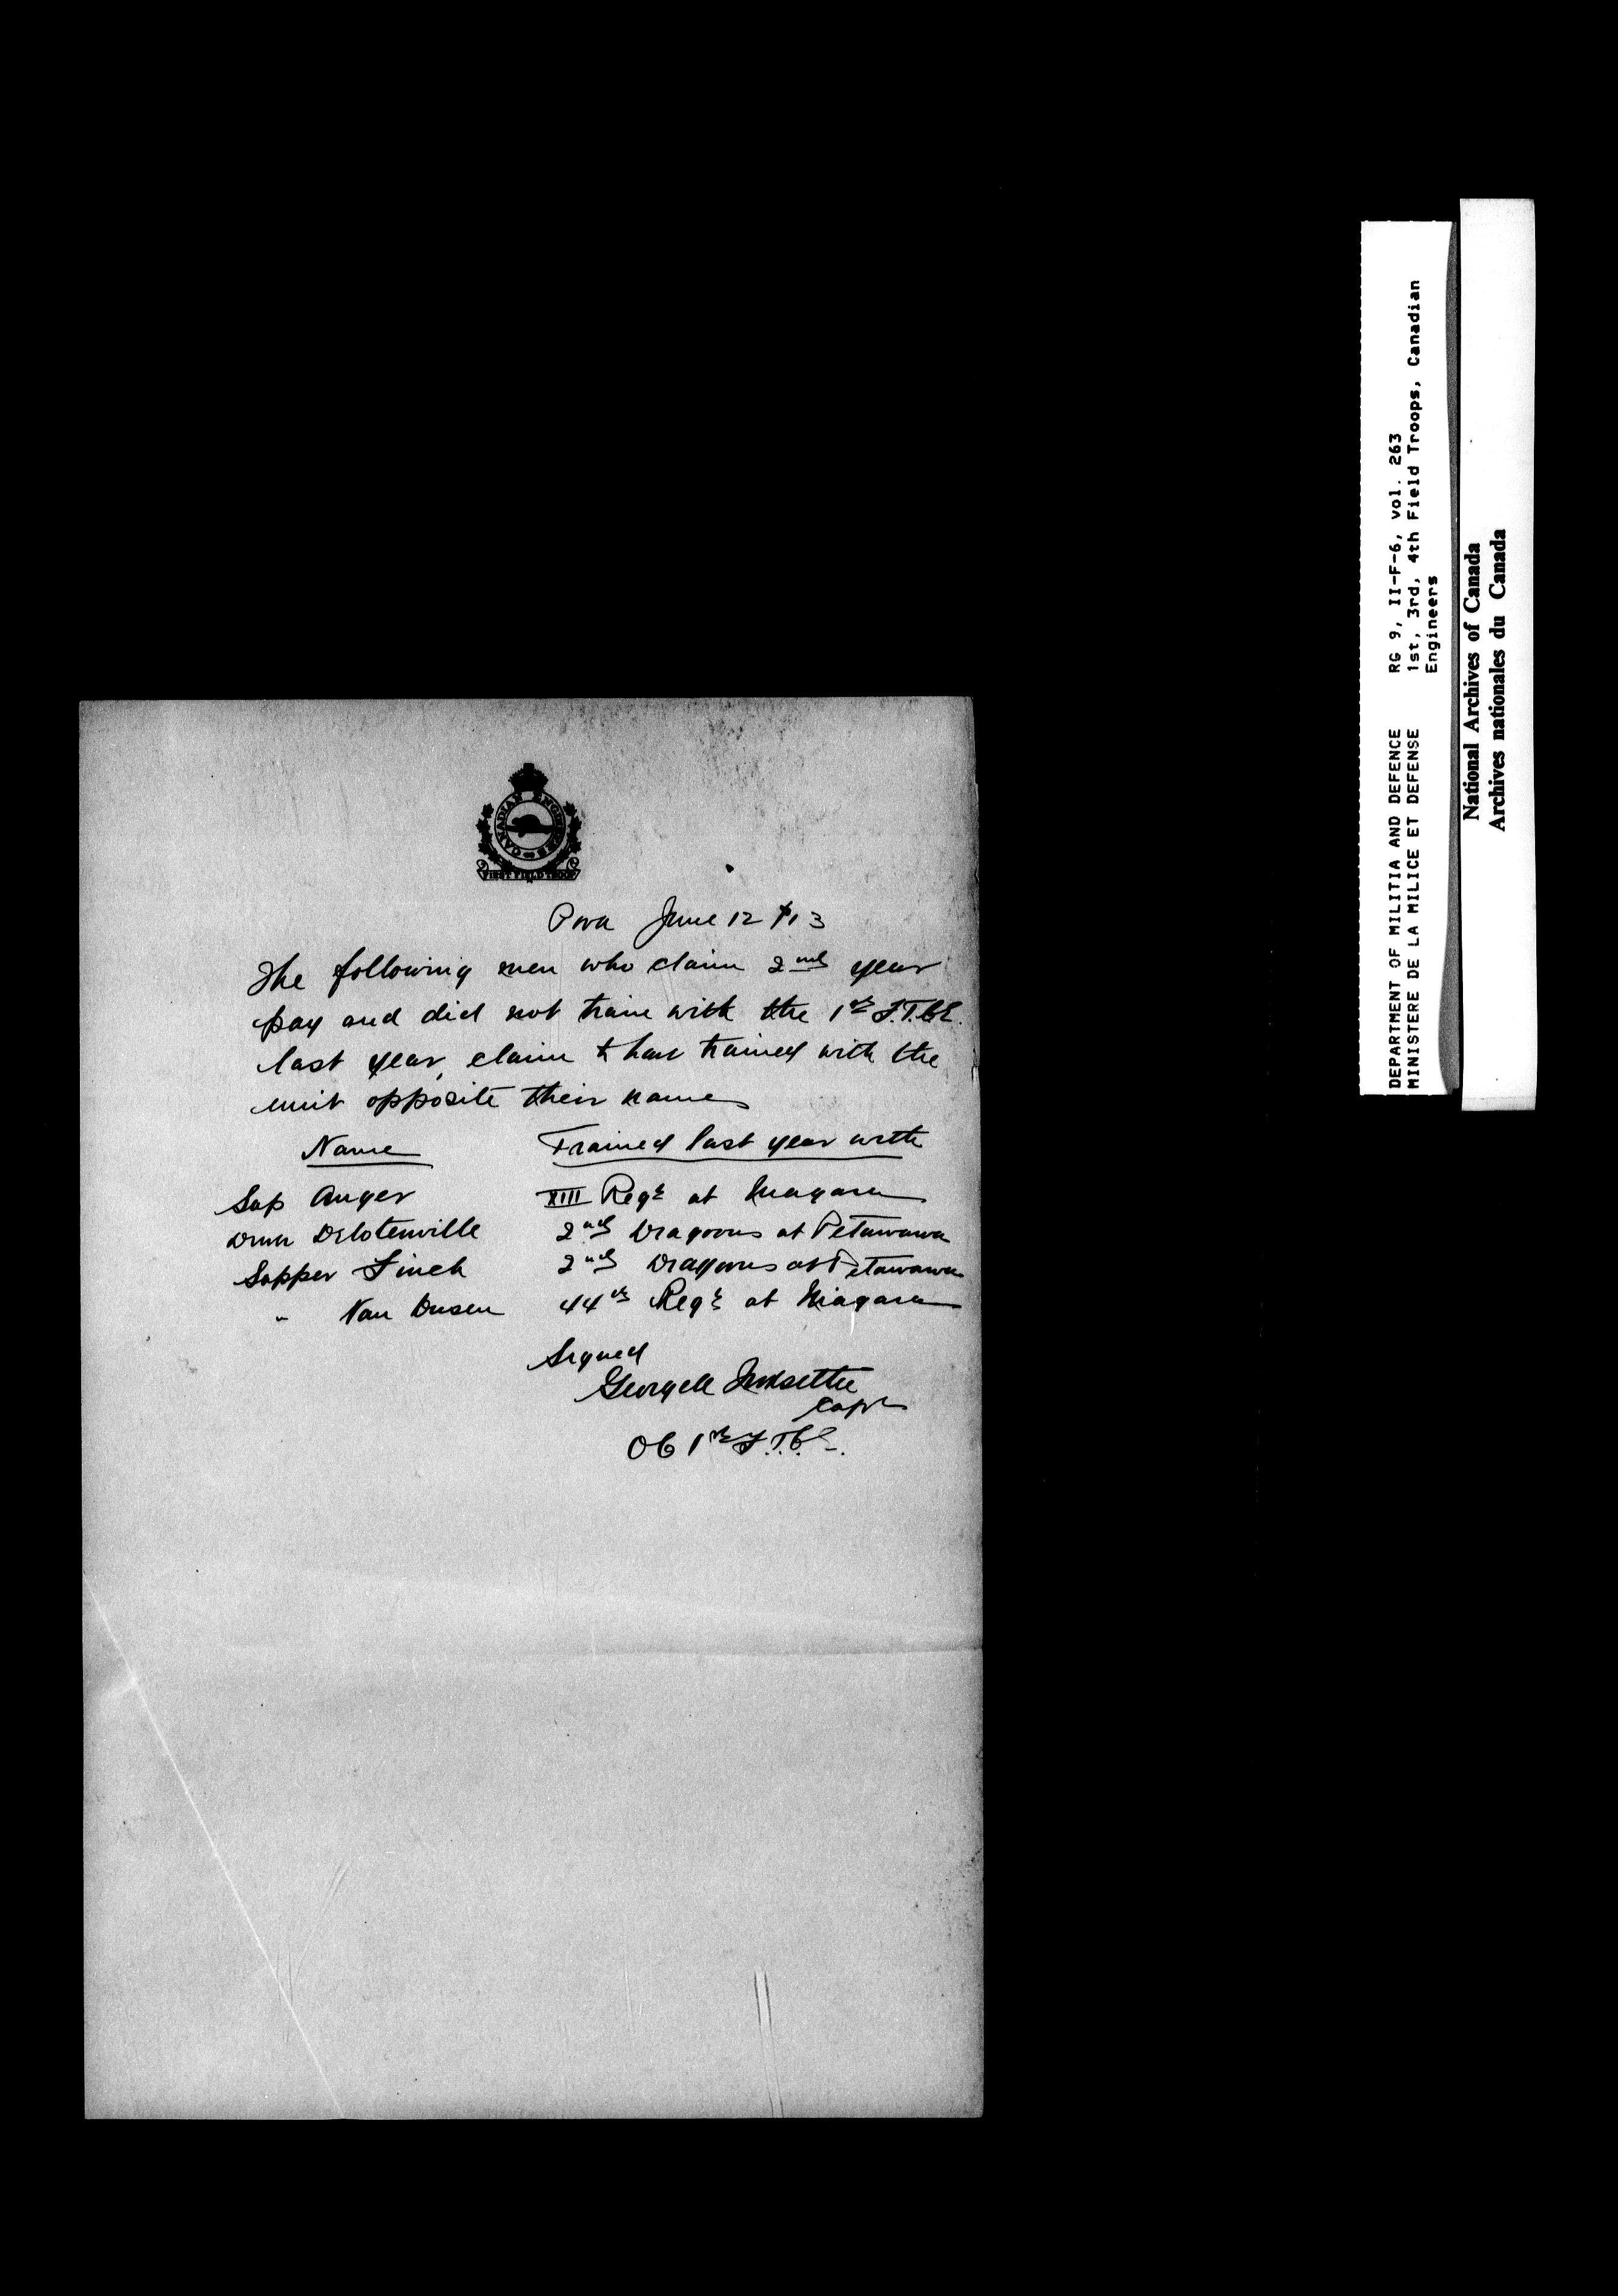 CANADIAN ENGINEERS
FIRST FIELD TROOP
Pwa June 12 /13
The following men who claim 2nd year
pay and did not train with the 1st F.T.C.E.
last year, claim to have trained with the
unit opposite their names
Name Trained last year with
Sap Auger XIII Regt at Niagara
2nd Dragoons at Petawawa
Sapper Finch 2nd Dragoons at Petawawa
" Van Dusen 44th Regt at Niagara
Signed
Capt
OC 1st F.T.C.E.
DEPARTMENT OF MILITIA AND DEFENCE RG 9, II-F-6, vol. 263
MINISTERE DE LA MILICE ET DEFENSE 1st, 3rd, 4th Field Troops, Canadian
Engineers
National Archives of Canada
Archives nationales du Canada